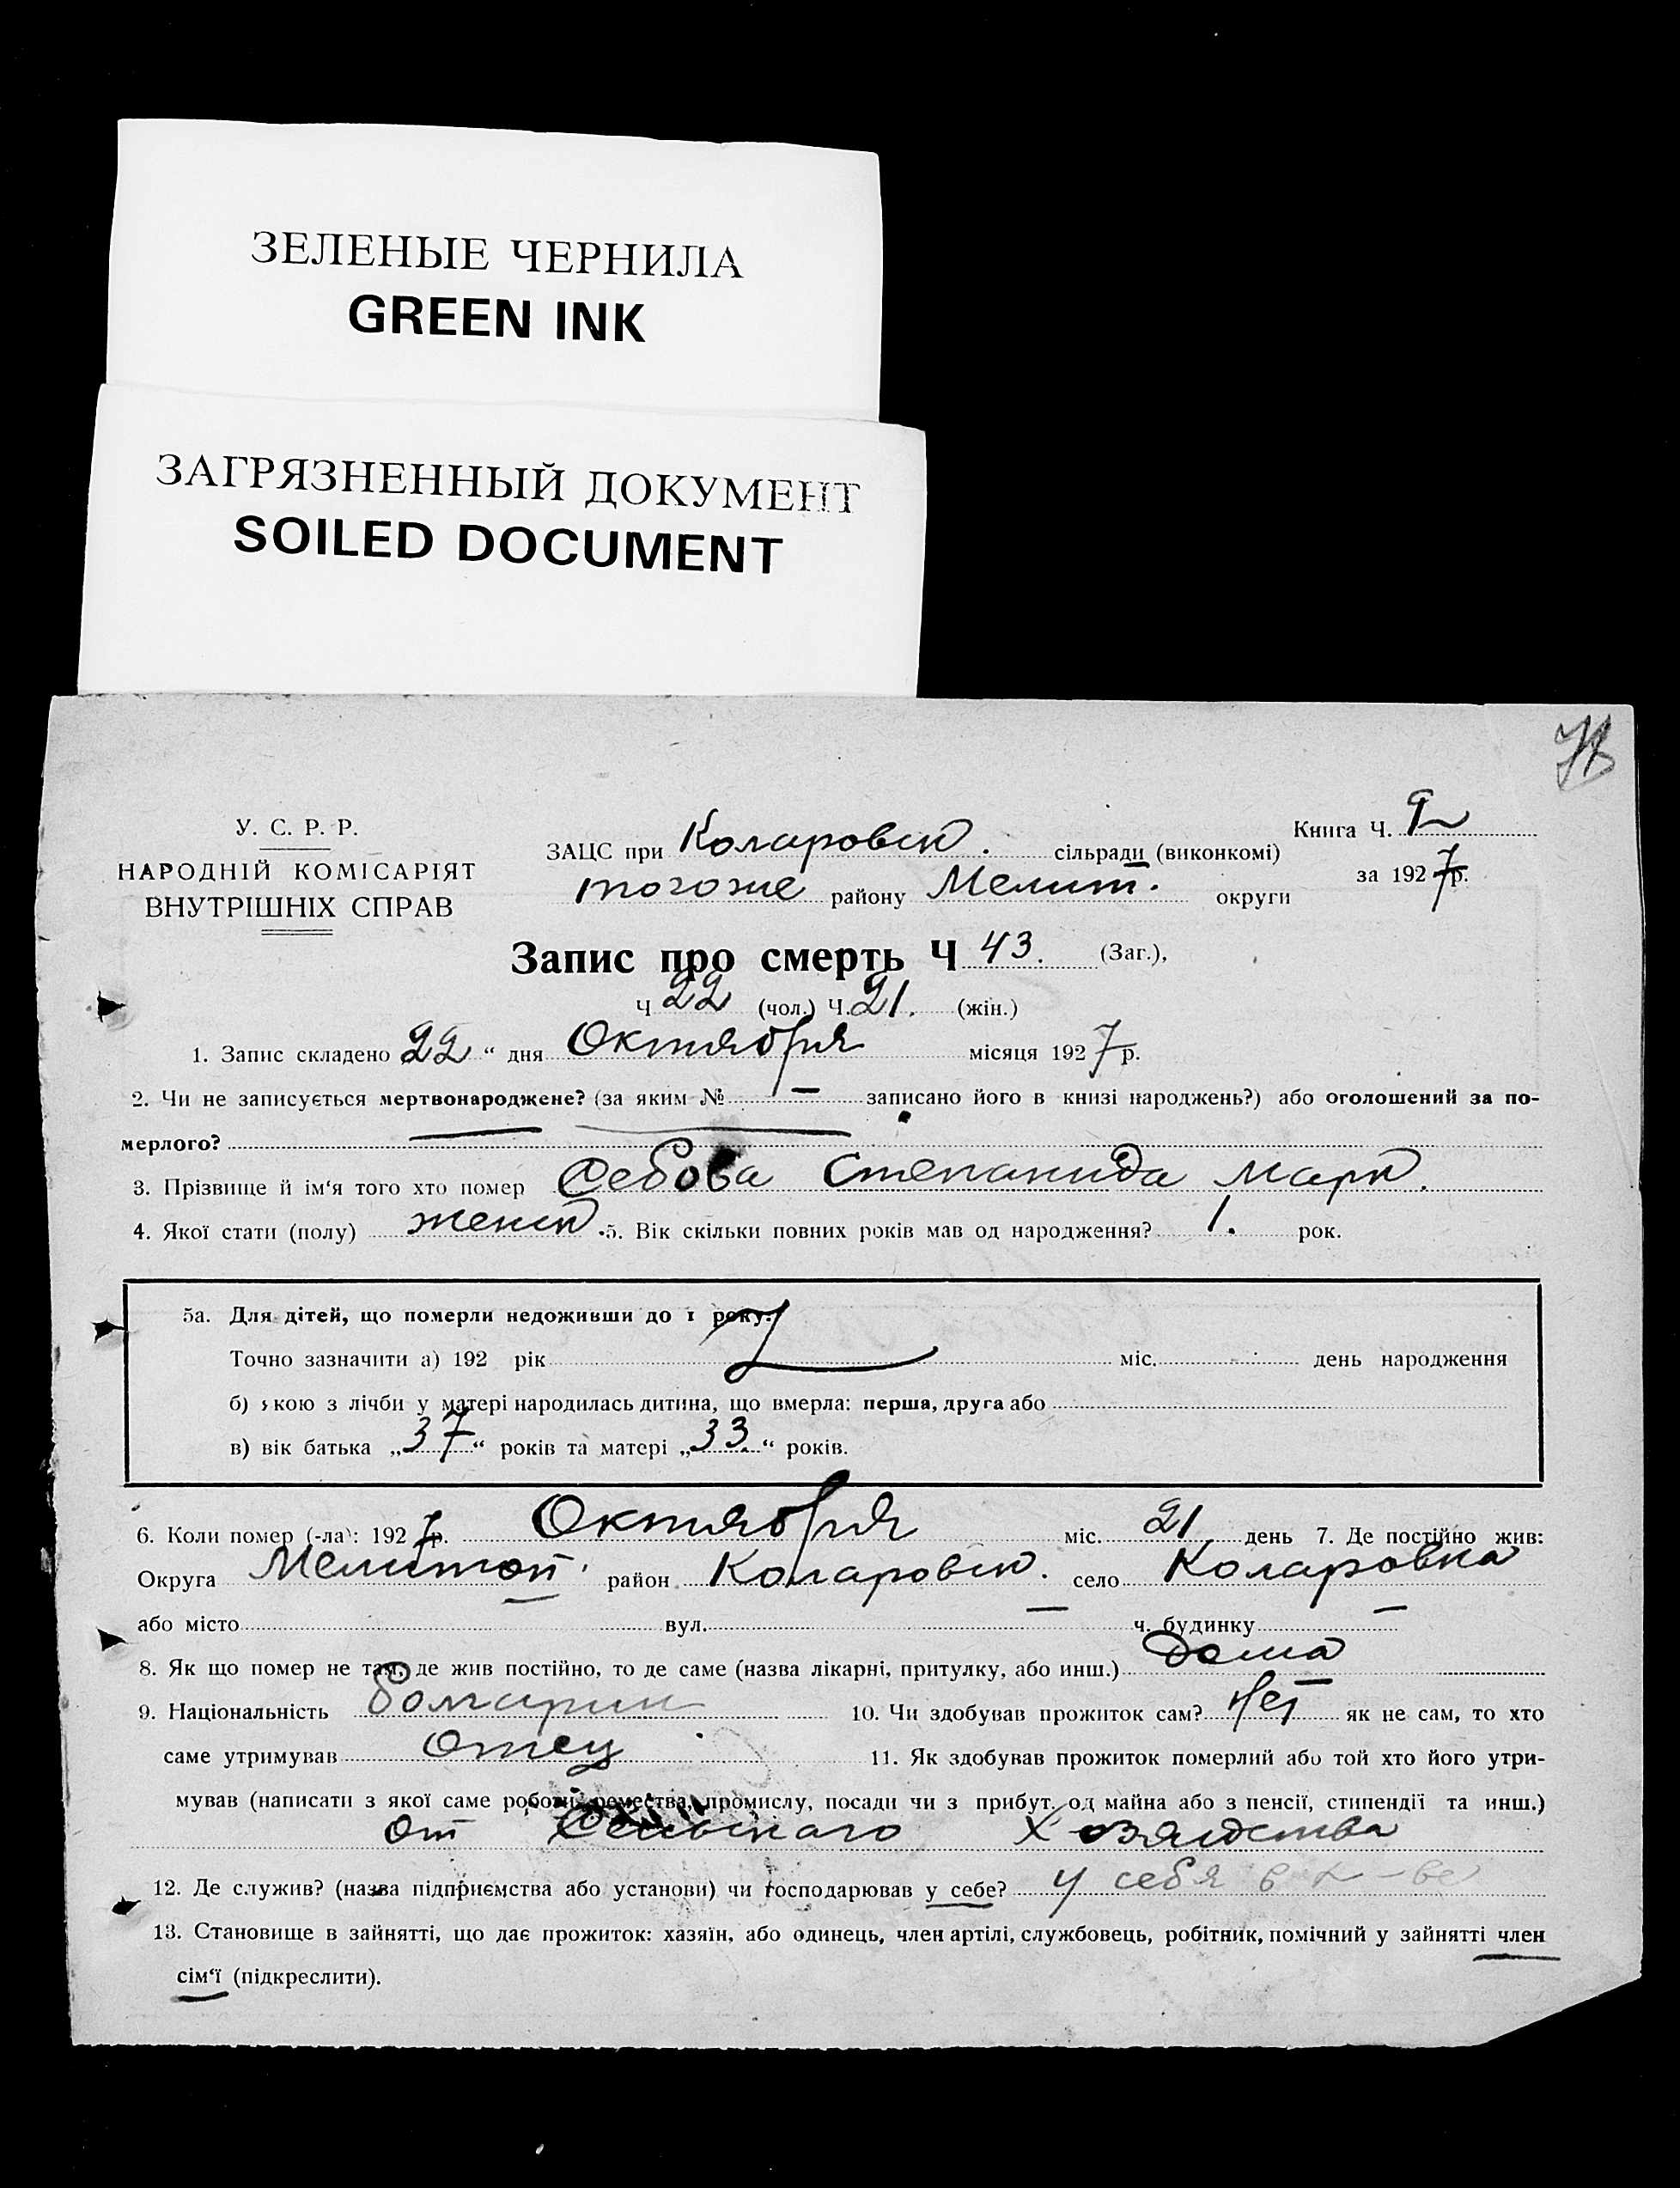 ЗЕЛЕНЫЕ ЧЕРНИЛА
GREEN INK
ЗАГРЯЗНЕННЫЙ ДОКУМЕНТ
SOILED DOCUMENT
У. С. Р. Р.
НАРОДНІЙ КОМІСАРІЯТ
ВНУТРІШНІХ СПРАВ
ЗАЦС при Коларовск. сільради (виконкомі)
тогоже району Мелит. округи
Книга Ч. 2
за 1927р.
Запис про смерть Ч 43. (Заг.),
Ч 22 (чол.) Ч. 21. (жін.)
1. Запис складено 22 “ дня Октября місяця 1927р.
2. Чи не записується мертвонароджене? (за яким № — записано його в книзі народжень?) або оголошений за по-
мерлого?
3. Прізвище й ім‘я того хто помер Степанида Марк.
4. Якої стати (полу) женск. 5. Вік скільки повних років мав од народження? 1. рок.
5а. Для дітей, що померли недоживши до 1 року.
Точно зазначити а) 192 рік міс. день народження
б) якою з лічби у матері народилась дитина, що вмерла: перша, друга або
в) вік батька „37“ років та матері „33“ років.
6. Коли помер (-ла): 1927р. Октября міс. 21 день 7. Де постійно жив:
Округа Мелитоп. район Коларовск. село Коларовка
або місто вул. ч. будинку
8. Як що помер не там, де жив постійно, то де саме (назва лікарні, притулку, або инш.) дома
9. Національність болгарин 10. Чи здобував прожиток сам? Нет як не сам, то хто
саме утримував Отец 11. Як здобував прожиток померлий або той хто його утри-
мував (написати з якої саме роботи, ремества, промислу, посади чи з прибут. од майна або з пенсії, стипендії та инш.)
От Сельскаго Хозяйства
12. Де служив? (назва підприємства або установи) чи господарював у себе? у себя в х-ве
13. Становище в зайнятті, що дає прожиток: хазяїн, або одинець, член артілі, службовець, робітник, помічний у зайнятті член
сім‘ї (підкреслити).